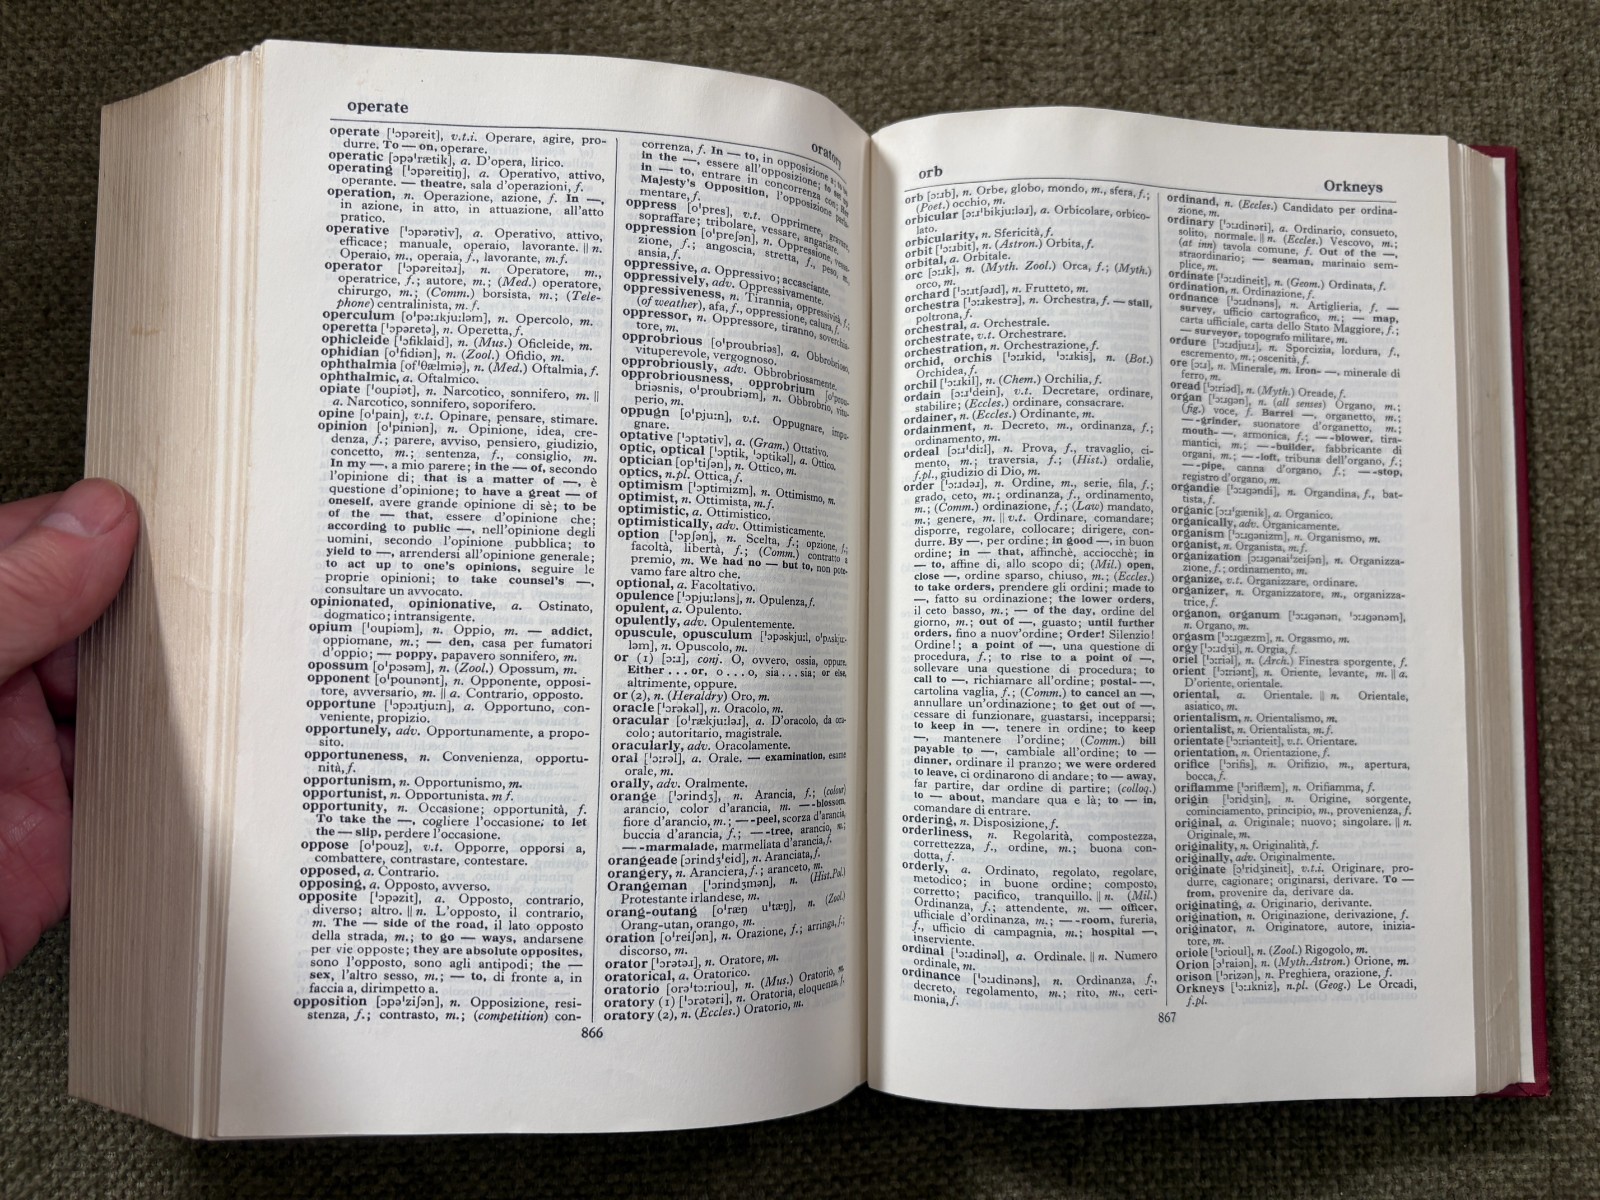 operate
operate ['ɔpəreit], v.t.i. Operare, agire, pro-
durre. To — on, operare.
operatic [ɔpə'rætik], a. D'opera, lirico.
operating ['ɔpəreitiŋ], a. Operativo, attivo,
operante. — theatre, sala d'operazioni, f.
operation, n. Operazione, azione, f. In —,
in azione, in atto, in attuazione, all'atto
pratico.
operative ['ɔpərətiv], a. Operativo, attivo,
efficace; manuale, operaio, lavorante. ‖ n.
Operaio, m., operaia, f., lavorante, m.f.
operator ['ɔpəreitəɹ], n. Operatore, m.,
operatrice, f.; autore, m.; (Med.) operatore,
chirurgo, m.; (Comm.) borsista, m.; (Tele-
phone) centralinista, m.f.
operculum [o'pəːɹkjuːləm], n. Opercolo, m.
operetta ['ɔpəretə], n. Operetta, f.
ophicleide ['ɔfiklaid], n. (Mus.) Oficleide, m.
ophidian [o'fidiən], n. (Zool.) Ofidio, m.
ophthalmia [of'θælmiə], n. (Med.) Oftalmia, f.
ophthalmic, a. Oftalmico.
opiate ['oupiət], n. Narcotico, sonnifero, m. ‖
a. Narcotico, sonnifero, soporifero.
opine [o'pain], v.t. Opinare, pensare, stimare.
opinion [o'piniən], n. Opinione, idea, cre-
denza, f.; parere, avviso, pensiero, giudizio,
concetto, m.; sentenza, f., consiglio, m.
In my —, a mio parere; in the — of, secondo
l'opinione di; that is a matter of —, è
questione d'opinione; to have a great — of
oneself, avere grande opinione di sè; to be
of the — that, essere d'opinione che;
according to public —, nell'opinione degli
uomini, secondo l'opinione pubblica; to
yield to —, arrendersi all'opinione generale;
to act up to one's opinions, seguire le
proprie opinioni; to take counsel's —,
consultare un avvocato.
opinionated, opinionative, a. Ostinato,
dogmatico; intransigente.
opium ['oupiəm], n. Oppio, m. — addict,
oppiomane, m.; — den, casa per fumatori
d'oppio; — poppy, papavero sonnifero, m.
opossum [o'pɔsəm], n. (Zool.) Opossum, m.
opponent [o'pounənt], n. Opponente, opposi-
tore, avversario, m. ‖ a. Contrario, opposto.
opportune ['ɔpəɹtjuːn], a. Opportuno, con-
veniente, propizio.
opportunely, adv. Opportunamente, a propo-
sito.
opportuneness, n. Convenienza, opportu-
nità, f.
opportunism, n. Opportunismo, m.
opportunist, n. Opportunista. m f.
opportunity, n. Occasione; opportunità, f.
To take the —, cogliere l'occasione; to let
the — slip, perdere l'occasione.
oppose [o'pouz], v.t. Opporre, opporsi a,
combattere, contrastare, contestare.
opposed, a. Contrario.
opposing, a. Opposto, avverso.
opposite ['ɔpəzit], a. Opposto, contrario,
diverso; altro. ‖ n. L'opposto, il contrario,
m. The — side of the road, il lato opposto
della strada, m.; to go — ways, andarsene
per vie opposte; they are absolute opposites,
sono l'opposto, sono agli antipodi; the —
sex, l'altro sesso, m.; — to, di fronte a, in
faccia a, dirimpetto a.
opposition [ɔpə'ziʃən], n. Opposizione, resi-
stenza, f.; contrasto, m.; (competition) con-
oratory
correnza, f. In — to, in opposizione a; to be
in the —, essere all'opposizione; to set up
in — to, entrare in concorrenza con; Her
Majesty's Opposition, l'opposizione parla-
mentare, f.
oppress [o'pres], v.t. Opprimere, gravare,
sopraffare; tribolare, vessare, angariare.
oppression [o'preʃən], n. Oppressione, vessa-
zione, f.; angoscia, stretta, f., peso, m.,
ansia, f.
oppressive, a. Oppressivo; accasciante.
oppressively, adv. Oppressivamente.
oppressiveness, n. Tirannia, oppressività, f.;
(of weather), afa, f., oppressione, calura, f.
oppressor, n. Oppressore, tiranno, soverchia-
tore, m.
opprobrious [o'proubriəs], a. Obbrobrioso,
vituperevole, vergognoso.
opprobriously, adv. Obbrobriosamente.
opprobriousness, opprobrium [o'prou-
briəsnis, o'proubriəm], n. Obbrobrio, vitu-
perio, m.
oppugn [o'pjuːn], v.t. Oppugnare, impu-
gnare.
optative ['ɔptətiv], a. (Gram.) Ottativo.
optic, optical ['ɔptik, 'ɔptikəl], a. Ottico.
optician [op'tiʃən], n. Ottico, m.
optics, n.pl. Ottica, f.
optimism ['ɔptimizm], n. Ottimismo, m.
optimist, n. Ottimista, m.f.
optimistic, a. Ottimistico.
optimistically, adv. Ottimisticamente.
option ['ɔpʃən], n. Scelta, f.; opzione, f.;
facoltà, libertà, f.; (Comm.) contratto a
premio, m. We had no — but to, non pote-
vamo fare altro che.
optional, a. Facoltativo.
opulence ['ɔpjuːləns], n. Opulenza, f.
opulent, a. Opulento.
opulently, adv. Opulentemente.
opuscule, opusculum ['ɔpəskjuːl, o'pʌskjuː-
ləm], n. Opuscolo, m.
or (1) [ɔːɹ], conj. O, ovvero, ossia, oppure.
Either . . . or, o . . . o, sia . . . sia; or else,
altrimenti, oppure.
or (2), n. (Heraldry) Oro, m.
oracle ['ɔrəkəl], n. Oracolo, m.
oracular [o'rækjuːləɹ], a. D'oracolo, da ora-
colo; autoritario, magistrale.
oracularly, adv. Oracolamente.
oral ['ɔːrəl], a. Orale. — examination, esame
orale, m.
orally, adv. Oralmente.
orange ['ɔrindʒ], n. Arancia, f.; (colour)
arancio, color d'arancia, m. — -blossom,
fiore d'arancio, m.; — -peel, scorza d'arancia,
buccia d'arancia, f.; — -tree, arancio, m.;
— -marmalade, marmellata d'arancia, f.
orangeade [ɔrindʒ'eid], n. Aranciata, f.
orangery, n. Aranciera, f.; aranceto, m.
Orangeman ['ɔrindʒmən], n. (Hist.Pol.)
Protestante irlandese, m.
orang-outang [o'ræŋ u'tæŋ], n. (Zool.)
Orang-utan, orango, m.
oration [o'reiʃən], n. Orazione, f.; arringa, f.;
discorso, m.
orator ['ɔrətəɹ], n. Oratore, m.
oratorical, a. Oratorico.
oratorio [orə'tɔːriou], n. (Mus.) Oratorio, m.
oratory (1) ['ɔrətəri], n. Oratoria, eloquenza, f.
oratory (2), n. (Eccles.) Oratorio, m.
866
orb
orb [ɔːɹb], n. Orbe, globo, mondo, m., sfera, f.;
(Poet.) occhio, m.
orbicular [ɔːɹ'bikjuːləɹ], a. Orbicolare, orbico-
lato.
orbicularity, n. Sfericità, f.
orbit ['ɔːɹbit], n. (Astron.) Orbita, f.
orbital, a. Orbitale.
orc [ɔːɹk], n. (Myth. Zool.) Orca, f.; (Myth.)
orco, m.
orchard ['ɔːɹtʃəɹd], n. Frutteto, m.
orchestra ['ɔːɹkestrə], n. Orchestra, f. — stall,
poltrona, f.
orchestral, a. Orchestrale.
orchestrate, v.t. Orchestrare.
orchestration, n. Orchestrazione, f.
orchid, orchis ['ɔːɹkid, 'ɔːɹkis], n. (Bot.)
Orchidea, f.
orchil ['ɔːɹkil], n. (Chem.) Orchilia, f.
ordain [ɔːɹ'dein], v.t. Decretare, ordinare,
stabilire; (Eccles.) ordinare, consacrare.
ordainer, n. (Eccles.) Ordinante, m.
ordainment, n. Decreto, m., ordinanza, f.;
ordinamento, m.
ordeal [ɔːɹ'diːl], n. Prova, f., travaglio, ci-
mento, m.; traversia, f.; (Hist.) ordalie,
f.pl., giudizio di Dio, m.
order ['ɔːɹdəɹ], n. Ordine, m., serie, fila, f.;
grado, ceto, m.; ordinanza, f., ordinamento,
m.; (Comm.) ordinazione, f.; (Law) mandato,
m.; genere, m. ‖ v.t. Ordinare, comandare;
disporre, regolare, collocare; dirigere, con-
durre. By —, per ordine; in good —, in buon
ordine; in — that, affinchè, acciocchè; in
— to, affine di, allo scopo di; (Mil.) open,
close —, ordine sparso, chiuso, m.; (Eccles.)
to take orders, prendere gli ordini; made to
—, fatto su ordinazione; the lower orders,
il ceto basso, m.; — of the day, ordine del
giorno, m.; out of —, guasto; until further
orders, fino a nuov'ordine; Order! Silenzio!
Ordine!; a point of —, una questione di
procedura, f.; to rise to a point of —,
sollevare una questione di procedura; to
call to —, richiamare all'ordine; postal- —,
cartolina vaglia, f.; (Comm.) to cancel an —,
annullare un'ordinazione; to get out of —,
cessare di funzionare, guastarsi, incepparsi;
to keep in —, tenere in ordine; to keep
—, mantenere l'ordine; (Comm.) bill
payable to —, cambiale all'ordine; to —
dinner, ordinare il pranzo; we were ordered
to leave, ci ordinarono di andare; to — away,
far partire, dar ordine di partire; (colloq.)
to — about, mandare qua e là; to — in,
comandare di entrare.
ordering, n. Disposizione, f.
orderliness, n. Regolarità, compostezza,
correttezza, f., ordine, m.; buona con-
dotta, f.
orderly, a. Ordinato, regolato, regolare,
metodico; in buone ordine; composto,
corretto; pacifico, tranquillo. ‖ n. (Mil.)
Ordinanza, f.; attendente, m. — officer,
ufficiale d'ordinanza, m.; — -room, fureria,
f., ufficio di campagnia, m.; hospital —,
inserviente.
ordinal ['ɔːɹdinəl], a. Ordinale. ‖ n. Numero
ordinale, m.
ordinance ['ɔːɹdinəns], n. Ordinanza, f.,
decreto, regolamento, m.; rito, m., ceri-
monia, f.
Orkneys
ordinand, n. (Eccles.) Candidato per ordina-
zione, m.
ordinary ['ɔːɹdinəri], a. Ordinario, consueto,
solito, normale. ‖ n. (Eccles.) Vescovo, m.;
(at inn) tavola comune, f. Out of the —,
straordinario; — seaman, marinaio sem-
plice, m.
ordinate ['ɔːɹdineit], n. (Geom.) Ordinata, f.
ordination, n. Ordinazione, f.
ordnance ['ɔːɹdnəns], n. Artiglieria, f. —
survey, ufficio cartografico, m.; — map,
carta ufficiale, carta dello Stato Maggiore, f.;
— surveyor, topografo militare, m.
ordure ['ɔːɹdjuːɹ], n. Sporcizia, lordura, f.,
escremento, m.; oscenità, f.
ore [ɔːɹ], n. Minerale, m. Iron- —, minerale di
ferro, m.
oread ['ɔːriəd], n. (Myth.) Oreade, f.
organ ['ɔːɹgən], n. (all senses) Organo, m.;
(fig.) voce, f. Barrel —, organetto, m.;
— -grinder, suonatore d'organetto, m.;
mouth- —, armonica, f.; — -blower, tira-
mantici, m.; — -builder, fabbricante di
organi, m.; — -loft, tribuna dell'organo, f.;
— -pipe, canna d'organo, f.; — -stop,
registro d'organo, m.
organdie ['ɔːɹgəndi], n. Organdina, f., bat-
tista, f.
organic [ɔːɹ'gænik], a. Organico.
organically, adv. Organicamente.
organism ['ɔːɹgənizm], n. Organismo, m.
organist, n. Organista, m.f.
organization [ɔːɹgənai'zeiʃən], n. Organizza-
zione, f.; ordinamento, m.
organize, v.t. Organizzare, ordinare.
organizer, n. Organizzatore, m., organizza-
trice, f.
organon, organum ['ɔːɹgənən, 'ɔːɹgənəm],
n. Organo, m.
orgasm ['ɔːɹgæzm], n. Orgasmo, m.
orgy ['ɔːɹdʒi], n. Orgia, f.
oriel ['ɔːriəl], n. (Arch.) Finestra sporgente, f.
orient ['ɔːriənt], n. Oriente, levante, m. ‖ a.
D'oriente, orientale.
oriental, a. Orientale. ‖ n. Orientale,
asiatico, m.
orientalism, n. Orientalismo, m.
orientalist, n. Orientalista, m.f.
orientate ['ɔːriənteit], v.t. Orientare.
orientation, n. Orientazione, f.
orifice ['ɔrifis], n. Orifizio, m., apertura,
bocca, f.
oriflamme ['ɔriflæm], n. Orifiamma, f.
origin ['ɔridʒin], n. Origine, sorgente,
cominciamento, principio, m., provenienza, f.
original, a. Originale; nuovo; singolare. ‖ n.
Originale, m.
originality, n. Originalità, f.
originally, adv. Originalmente.
originate [o'ridʒineit], v.t.i. Originare, pro-
durre, cagionare; originarsi, derivare. To —
from, provenire da, derivare da.
originating, a. Originario, derivante.
origination, n. Originazione, derivazione, f.
originator, n. Originatore, autore, inizia-
tore, m.
oriole ['ɔrioul], n. (Zool.) Rigogolo, m.
Orion [ɔ'raiən], n. (Myth.Astron.) Orione, m.
orison ['ɔrizən], n. Preghiera, orazione, f.
Orkneys ['ɔːɹkniz], n.pl. (Geog.) Le Orcadi,
f.pl.
867